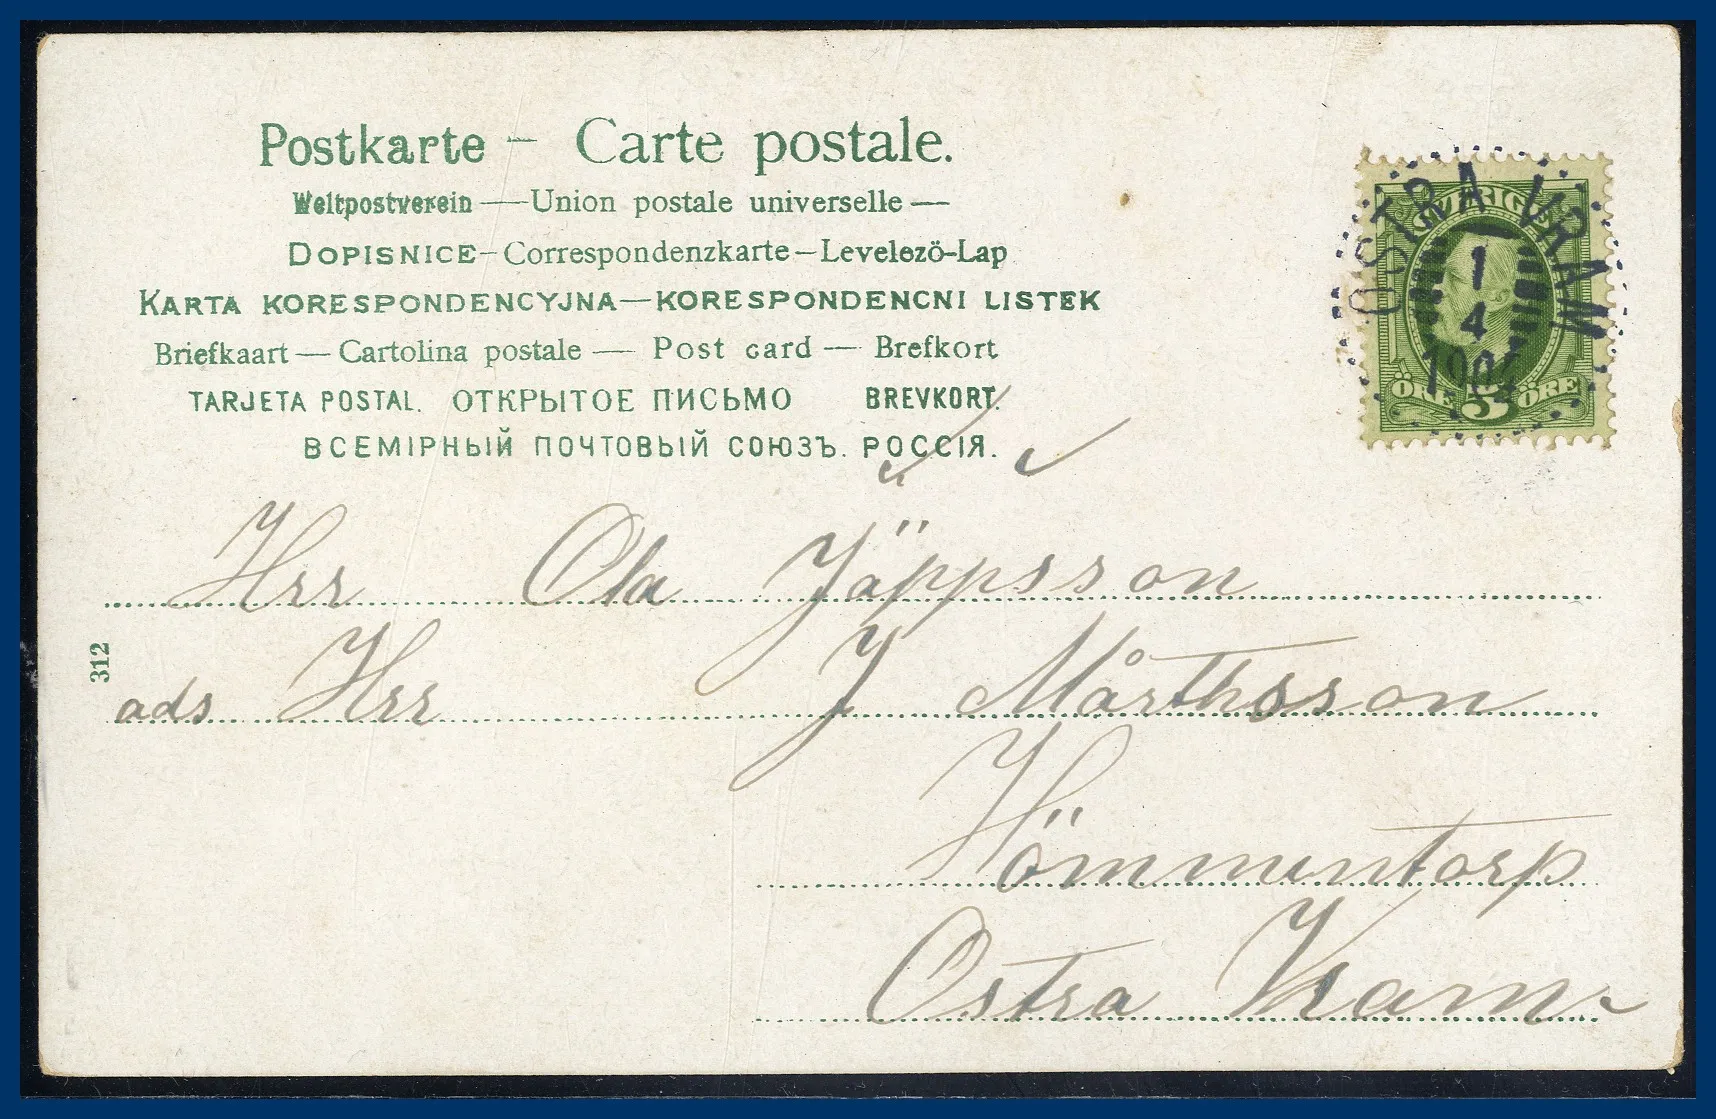 Postkarte – Carte postale.
Weltpostverein — Union postale universelle —
DOPISNICE – Correspondenzkarte – Levelező-Lap
KARTA KORESPONDENCYJNA — KORESPONDENCNI LISTEK
Briefkaart — Cartolina postale — Post card — Brefkort
TARJETA POSTAL. ОТКРЫТОЕ ПИСЬМО BREVKORT.
ВСЕМІРНЫЙ ПОЧТОВЫЙ СОЮЗЪ. РОССІЯ.
SVERIGE
ÖSTRA VRAM
1
4
1904
5
ÖRE ÖRE
Hrr Ola Jäppsson
312
ads Hrr J Mårthsson
Hömmentorp
Ostra Vram